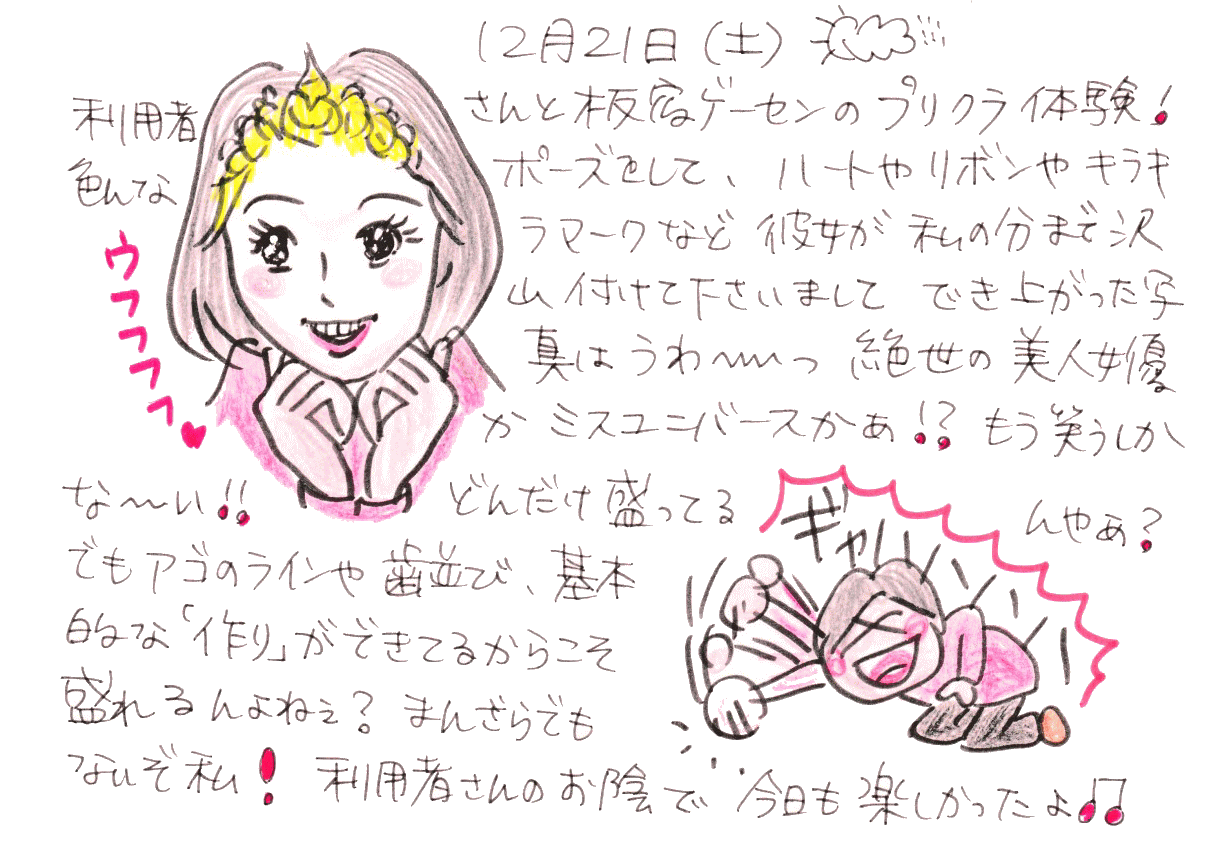 12月21日(土)
利用者さんと板宿ゲーセンのプリクラ体験!
色んなポーズをして、ハートやリボンやキラキ
ラマークなど彼女が私の分まで沢
山付けて下さいましてでき上がった写
真はうわ〜〜っ絶世の美人女優
かミスユニバースかぁ!?もう笑うしか
な〜い!!どんだけ盛ってるんやぁ?
でもアゴのラインや歯並び、基本
的な「作り」ができてるからこそ
盛れるんよねぇ?まんざらでも
ないぞ私!利用者さんのお陰で今日も楽しかったよ♫
ウフフフフ♥
ギャハハ